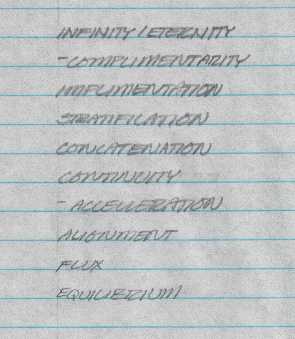 INFINITY / ETERNITY
- COMPLIMENTARITY
IMPLIMENTATION
STRATIFICATION
CONCATENATION
CONTINUITY
- ACCELLERATION
ALIGNMENT
FLUX
EQUILIBRIUM